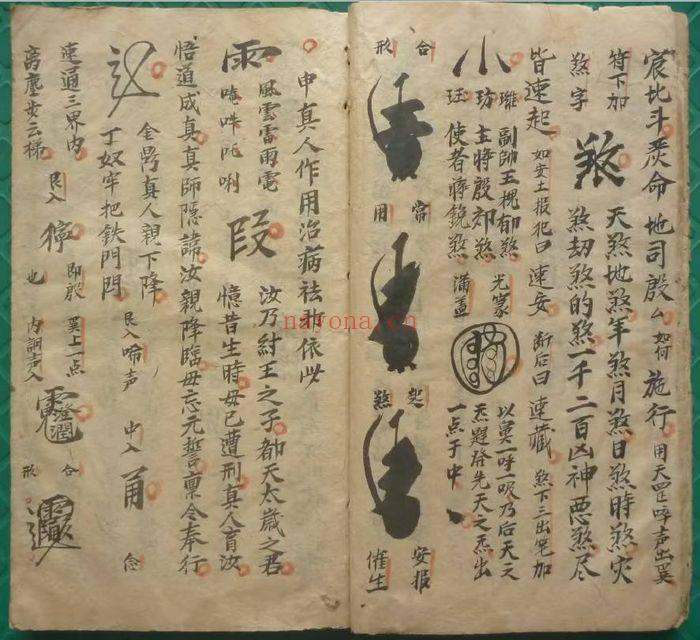 宸北斗炁命 地司殷么 如何 施行 用天罡啐声出筭
符下加
煞字
煞
天煞地煞年煞月煞日煞時煞灾
煞劫煞的煞一千二百凶神惡煞尽
皆速起 如安土报犯曰 速安 断后曰 速藏 煞下三出笔加
小
璀 副帥王槐郁煞
玏 主将殷郊煞
珏 使者蒋銳煞
光蒙
滿盖
以 一呼一吸乃后天之
炁題發先天之炁出
一点于中
合形
常用
起煞
安报
催生
申真人作用治病祛邪依此
雨
風雲雷雨電
唵吽吒唎
段
汝乃紂王之子部天太歲之君
憶昔生時母已遭刑真人育汝
悟道成真真師隱諱汝親降臨毋忘元誓稟令奉行
金鼎真人親下降
丁奴牢把铁門閂
艮入 啼声 中入 甬 念
速通三界内
高塵步云梯
艮入 獰 也
即殷 上一点
内詞声入
澄潤
合形
nayona.cn